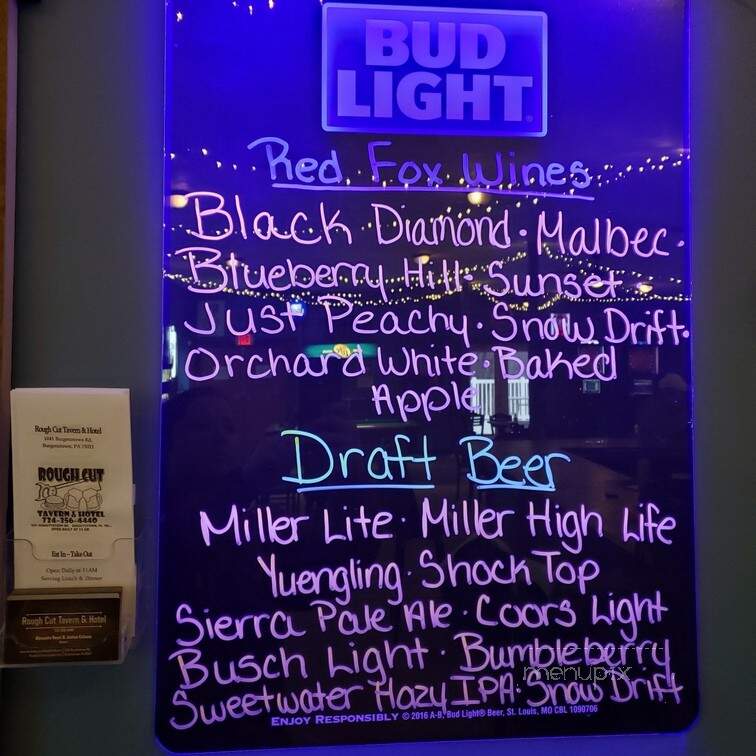 BUD
LIGHT
Red Fox Wines
Black Diamond · Malbec ·
Blueberry Hill · Sunset
Just Peachy · Snow Drift ·
Orchard White · Baked
Apple
Draft Beer
Miller Lite · Miller High Life
Yuengling · Shock Top
Sierra Pale Ale · Coors Light
Busch Light · Bumbleberry
Sweetwater Hazy IPA · Snow Drift
menupix
ENJOY RESPONSIBLY © 2016 A-B, Bud Light® Beer, St. Louis, MO CBL 1090706
Rough Cut Tavern & Hotel
ROUGH CUT
TAVERN & HOTEL
724-356-4440
Eat In - Take Out
Open Daily at 11AM
Serving Lunch & Dinner
Rough Cut Tavern & Hotel